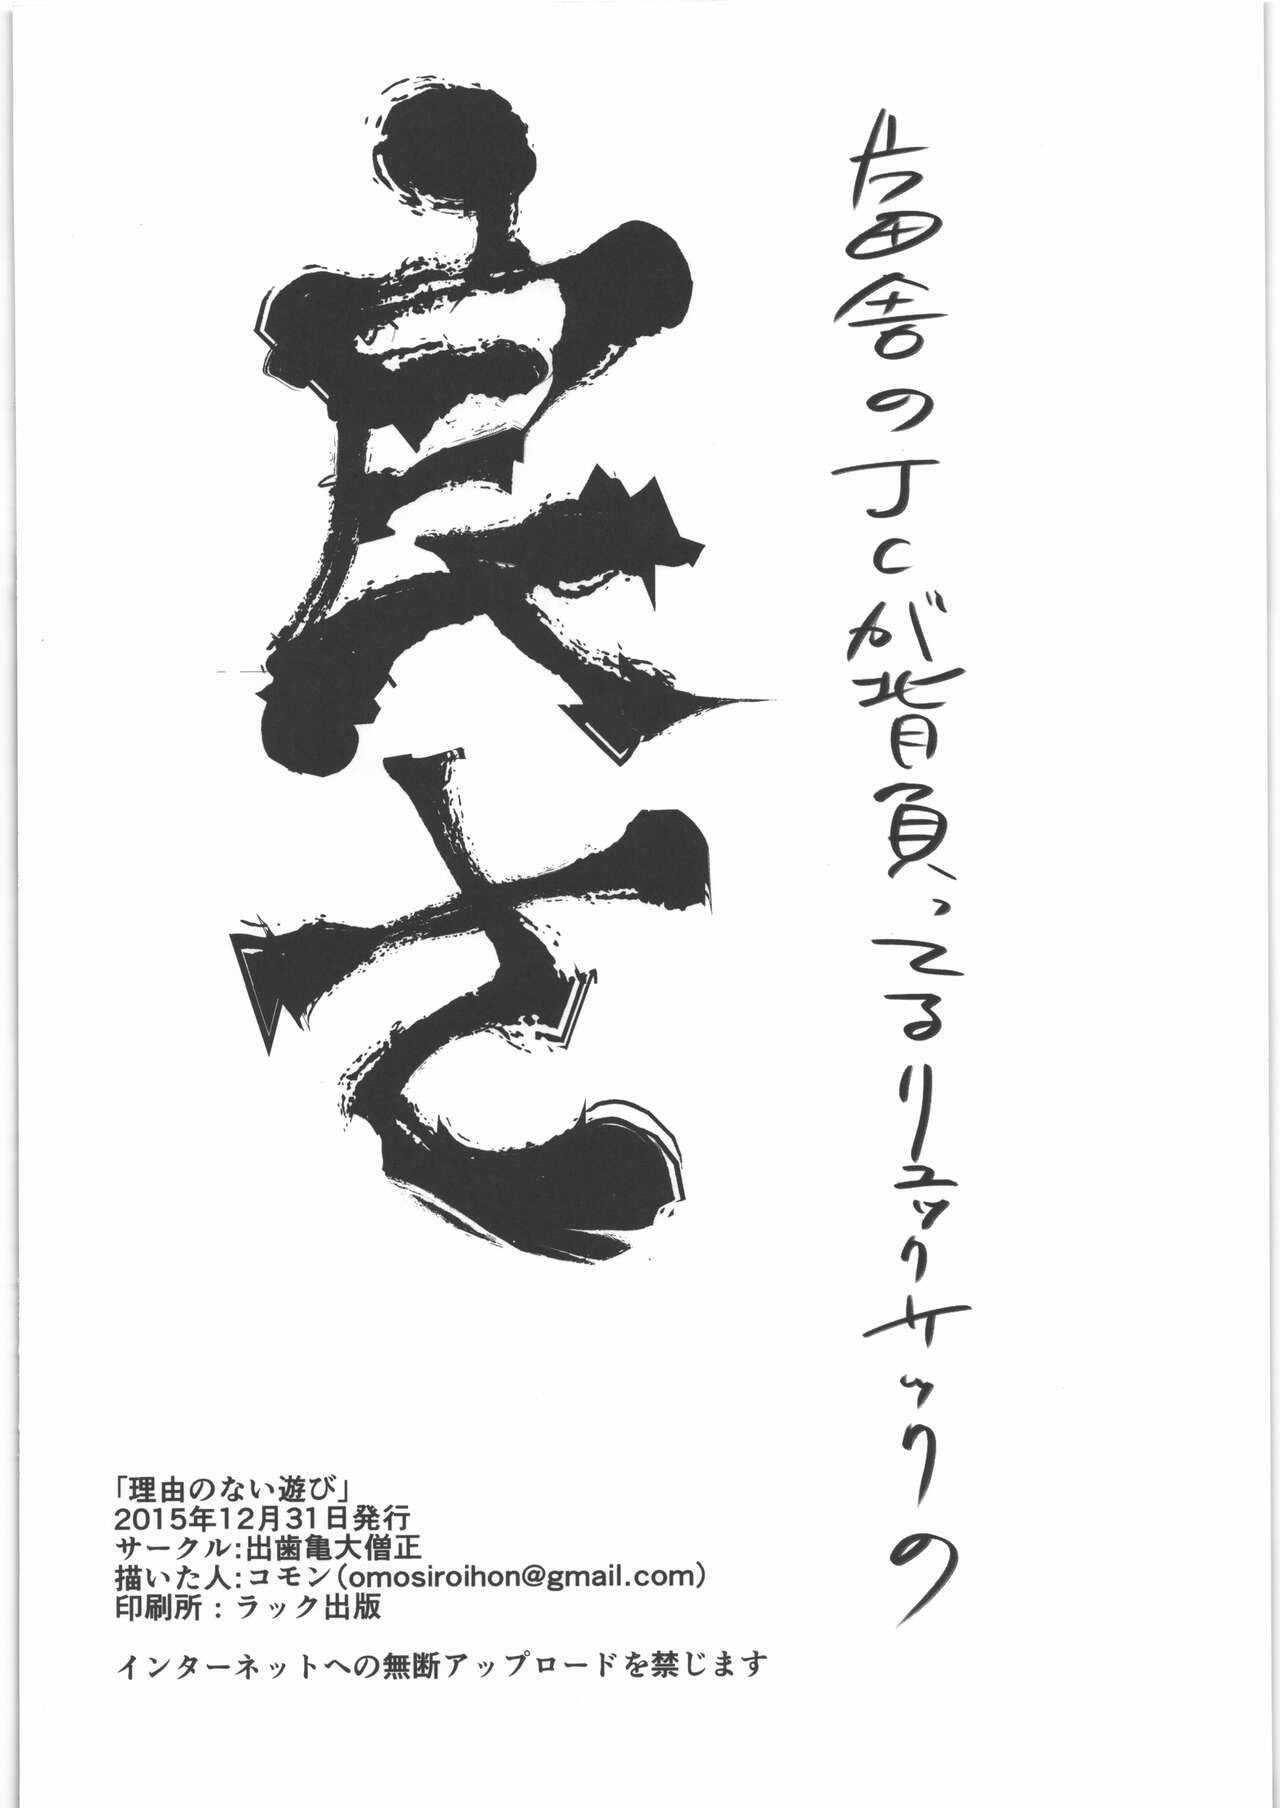 片田舎のJCが背負ってるリュックサックの
良さ
「理由のない遊び」
2015年12月31日発行
サークル:出歯亀大僧正
描いた人:コモン(omosiroihon@gmail.com)
印刷所：ラック出版
インターネットへの無断アップロードを禁じます